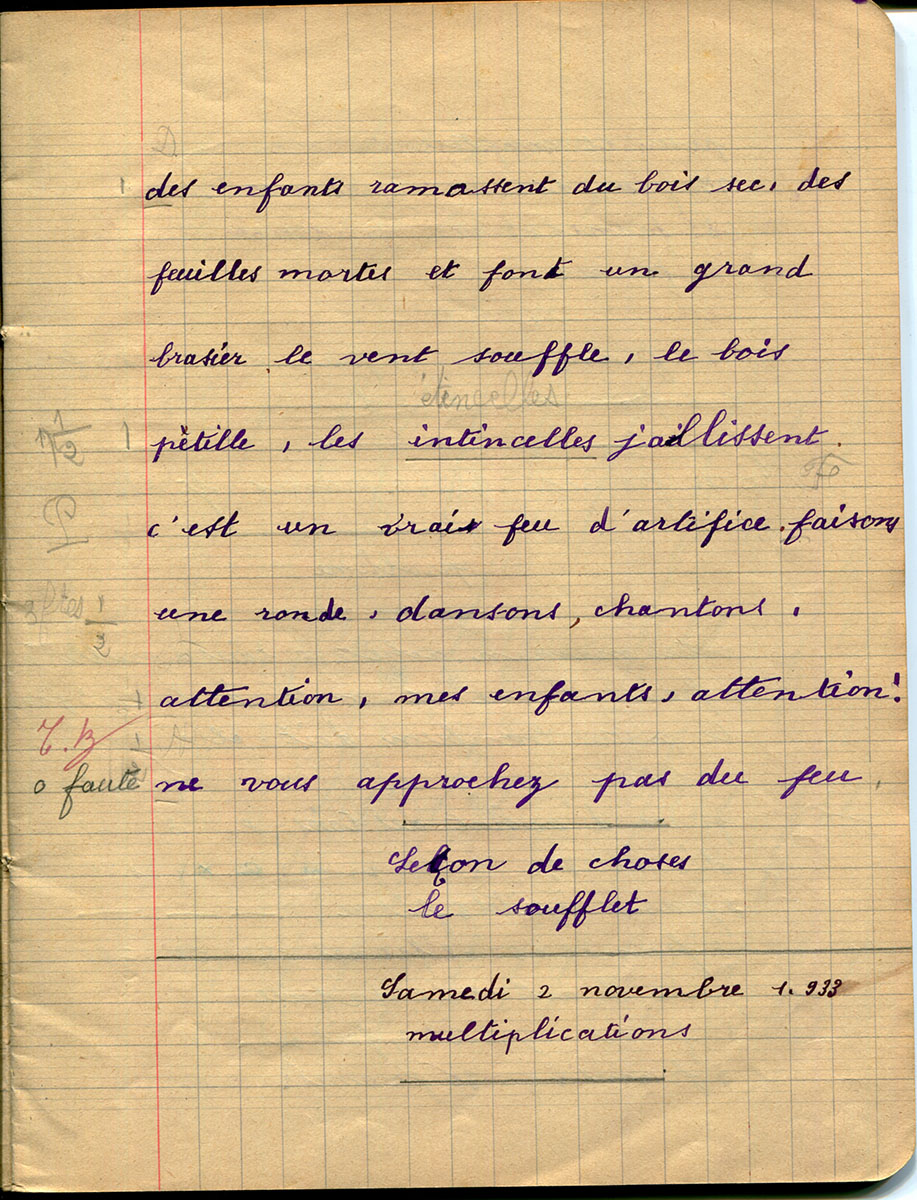 D
1 des enfants ramassent du bois sec, des
feuilles mortes et font un grand
brasier le vent souffle, le bois
étencelles
1 pètille, les intincelles jaillissent.
c'est un vrai feu d'artifice. faisons
une ronde, dansons, chantons.
attention, mes enfants, attention!
T. B
0 faute ne vous approchez pas du feu.
Leçon de choses
le soufflet
Samedi 2 novembre 1.933
multiplications